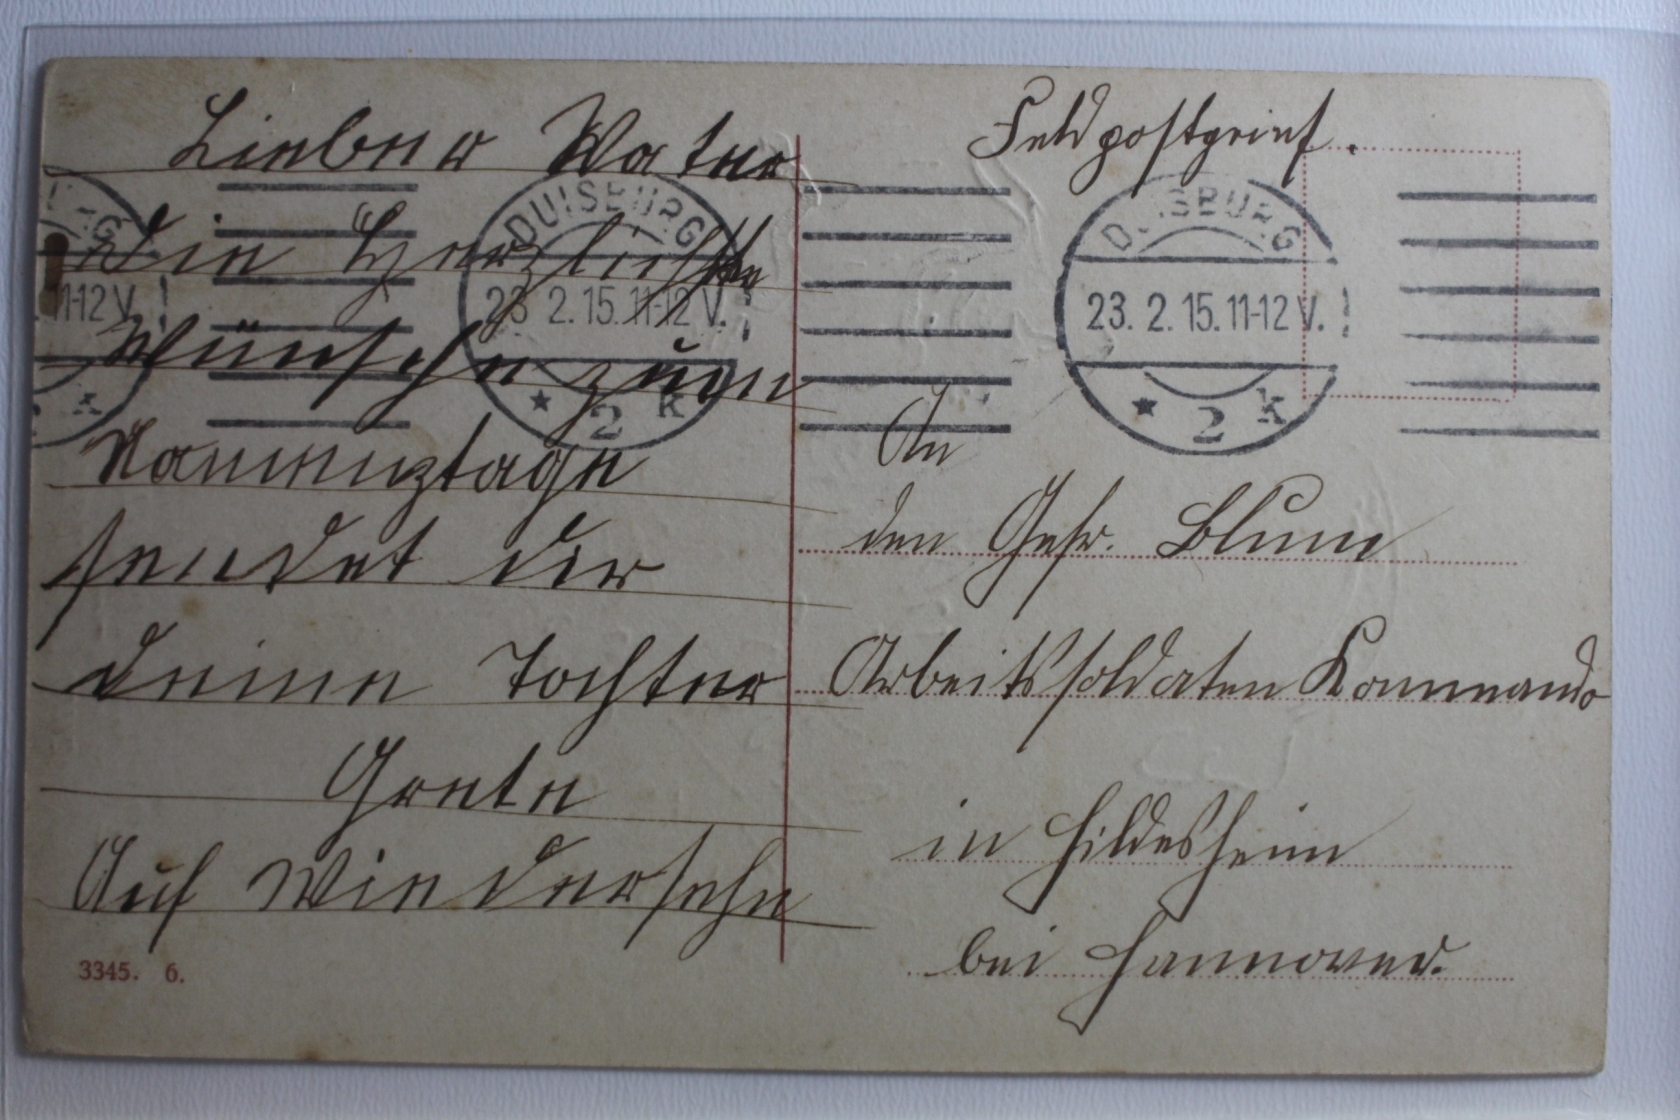 Lieber Vater
Die Herzlichste
Wünsche zum
Namenztage
sendet dir
deine Tochter
Grete
Auf Wiedersehe
3345. 6.
Feldpostbrief.
DUISBURG
23. 2. 15. 11-12 V.
* 2 k
DUISBURG
23. 2. 15. 11-12 V.
* 2 k
11-12 V.
k
An
den Gefr. Blum
Arbeitssoldaten Kommando
in Hildesheim
bei Hannover.